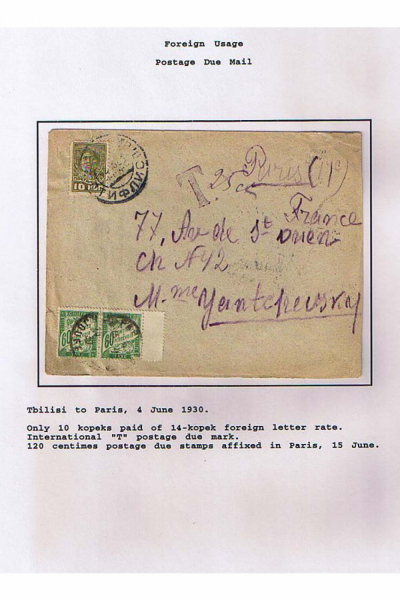 Foreign Usage
Postage Due Mail
10 КОП
T 25 cs Paris (17e)
France
77, Av de St Ouen
ch N42
M. me Yantchevsky
60 60
Tbilisi to Paris, 4 June 1930.
Only 10 kopeks paid of 14-kopek foreign letter rate.
International "T" postage due mark.
120 centimes postage due stamps affixed in Paris, 15 June.